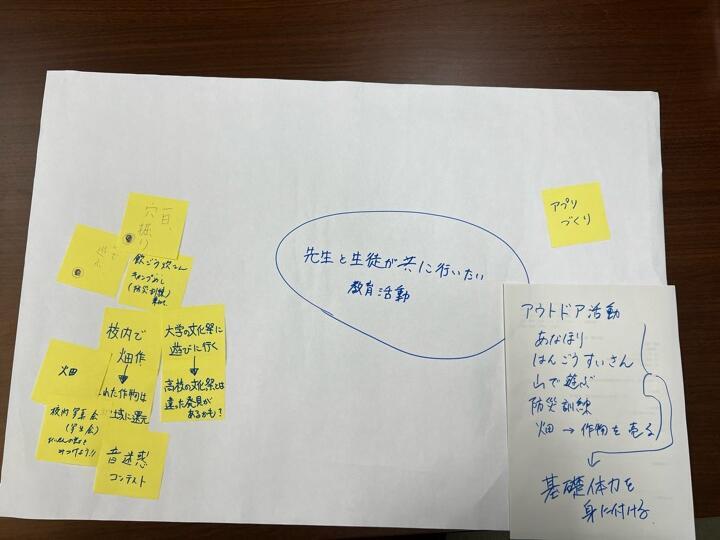 先生と生徒が共に行いたい
教育活動
アプリ
づくり
一日、
穴掘り
山で
遊ぶ
飯ごう炊さん
キャンプめし
(防災訓練)
校内で
畑作
れた作物は
地域に還元
大学の文化祭に
遊びに行く
高校の文化祭とは
違った発見が
あるかも?
畑
校内写真会
(学生会)
みつけよう!!
音迷惑
コンテスト
アウトドア活動
あなほり
はんごうすいさん
山で遊ぶ
防災訓練
畑 → 作物を売る
基礎体力を
身に付ける